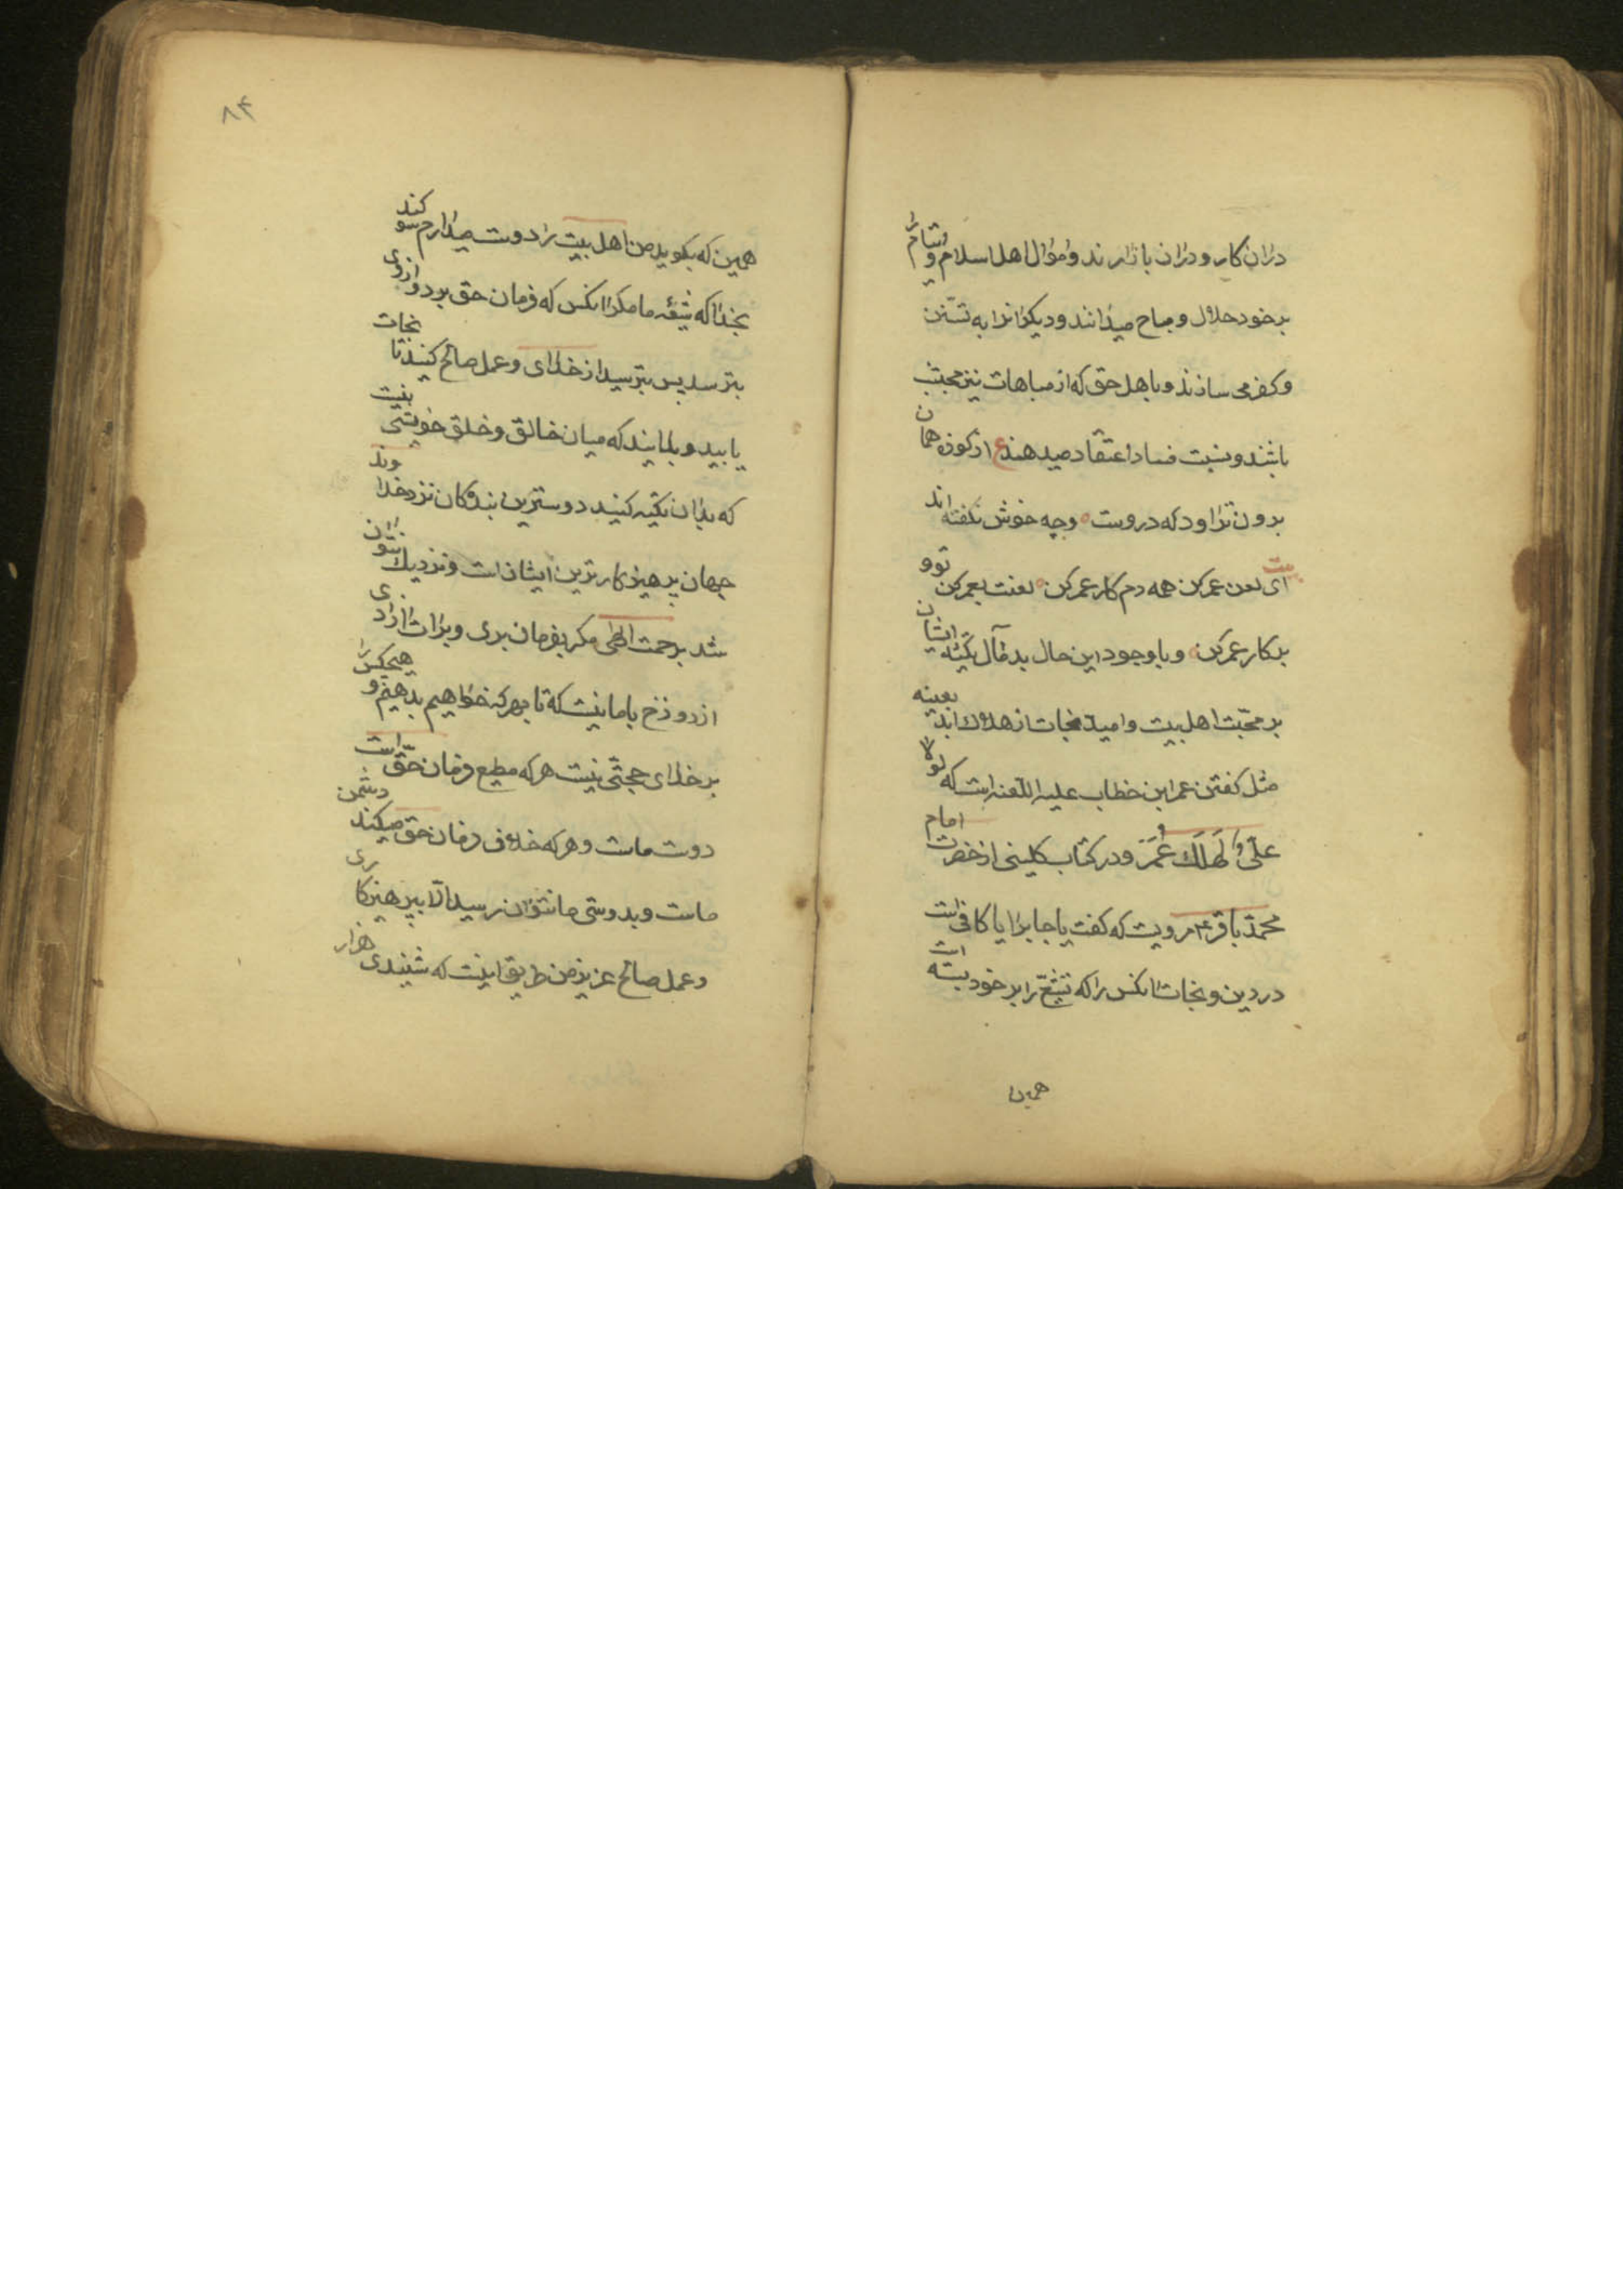 دران کار و دران بازارند و اموال اهل اسلام و شام را
بر خود حلال و مباح میدانند و دیکرانرا به تسنن
و کفر می سازند و با هل حق که از مباهات نیز مجتنب
باشند و نسبت فساد اعتقاد میدهند ع از کوزه همان
برون تراود که دروست وچه خوش نکفته اند
بیت ای لعن عمر کن همه دم کار عمر کن لعنت بعمر کن توو
بر کار عمر کن و با وجود این حال بد مآل تکیه ایشان
بر محبت اهل بیت و امید نجات از هلاک ابد بعینه
مثل کفتن عمر ابن خطاب علیه اللعنه است که لولا
علی لهلک عمر و در کتاب کلینی از حضرت امام
محمد باقر ع مرویست که کفت یا جابر ایا کافی است
در دین و نجات انکس را که تشیع را بر خود بسته است
همین
۸۴
همین که بکوید من اهل بیت را دوست میدارم سوکند
بخدا که شیعه ما مکر انکس که فرمان حق برد و ازوی
بترسد پس بترسید از خدای و عمل صالح کنید تا نجات
یابید و بدانید که میان خالق و خلق خویشی نیست
که بدان تکیه کنید دوسترین بندکان نزد خداوند
جهان پرهیزکار ترین ایشان است و نزدیک نتوان
شد برحمت الهی مکر بفرمان بری و برات ازادی
از دوزخ با ما نیست که تا بهر که خواهیم بدهیم و هیچکس را
بر خدای حجتی نیست هر که مطیع فرمان حق است
دوست ماست و هر که خلاف فرمان حق میکند دشمن
ماست و بدوستی ما نتوان رسید الا بپرهیزکاری
و عمل صالح عزیز من طریق اینست که شنیدی هزار